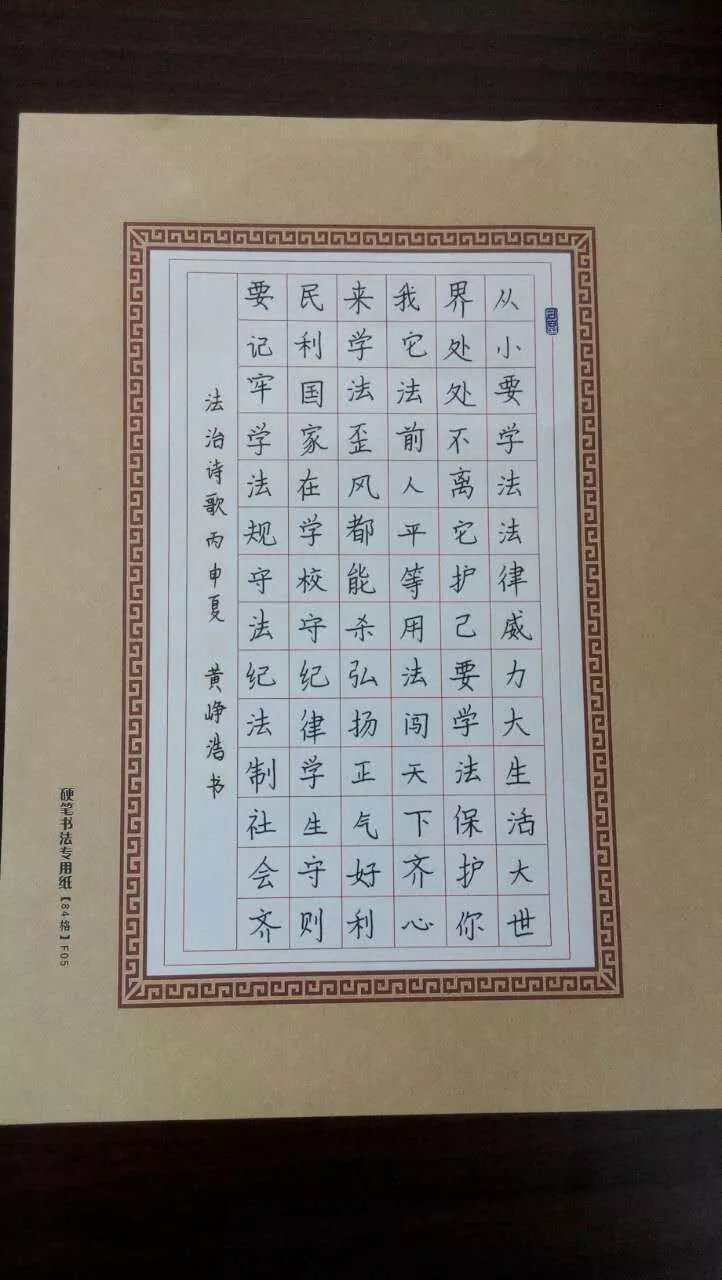 从小要学法法律威力大生活大世
界处处不离它护己要学法保护你
我它法前人平等用法闯天下齐心
来学法歪风都能杀弘扬正气好利
民利国家在学校守纪律学生守则
要记牢学法规守法纪法制社会齐
法治诗歌丙申夏 黄峥浩书
硬笔书法专用纸【84格】F05